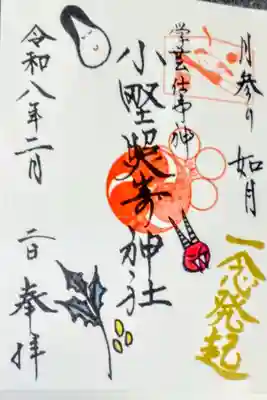 月参り 如月
学芸仕事神
小野照崎神社
令和八年二月
二日 奉拝
一念発起